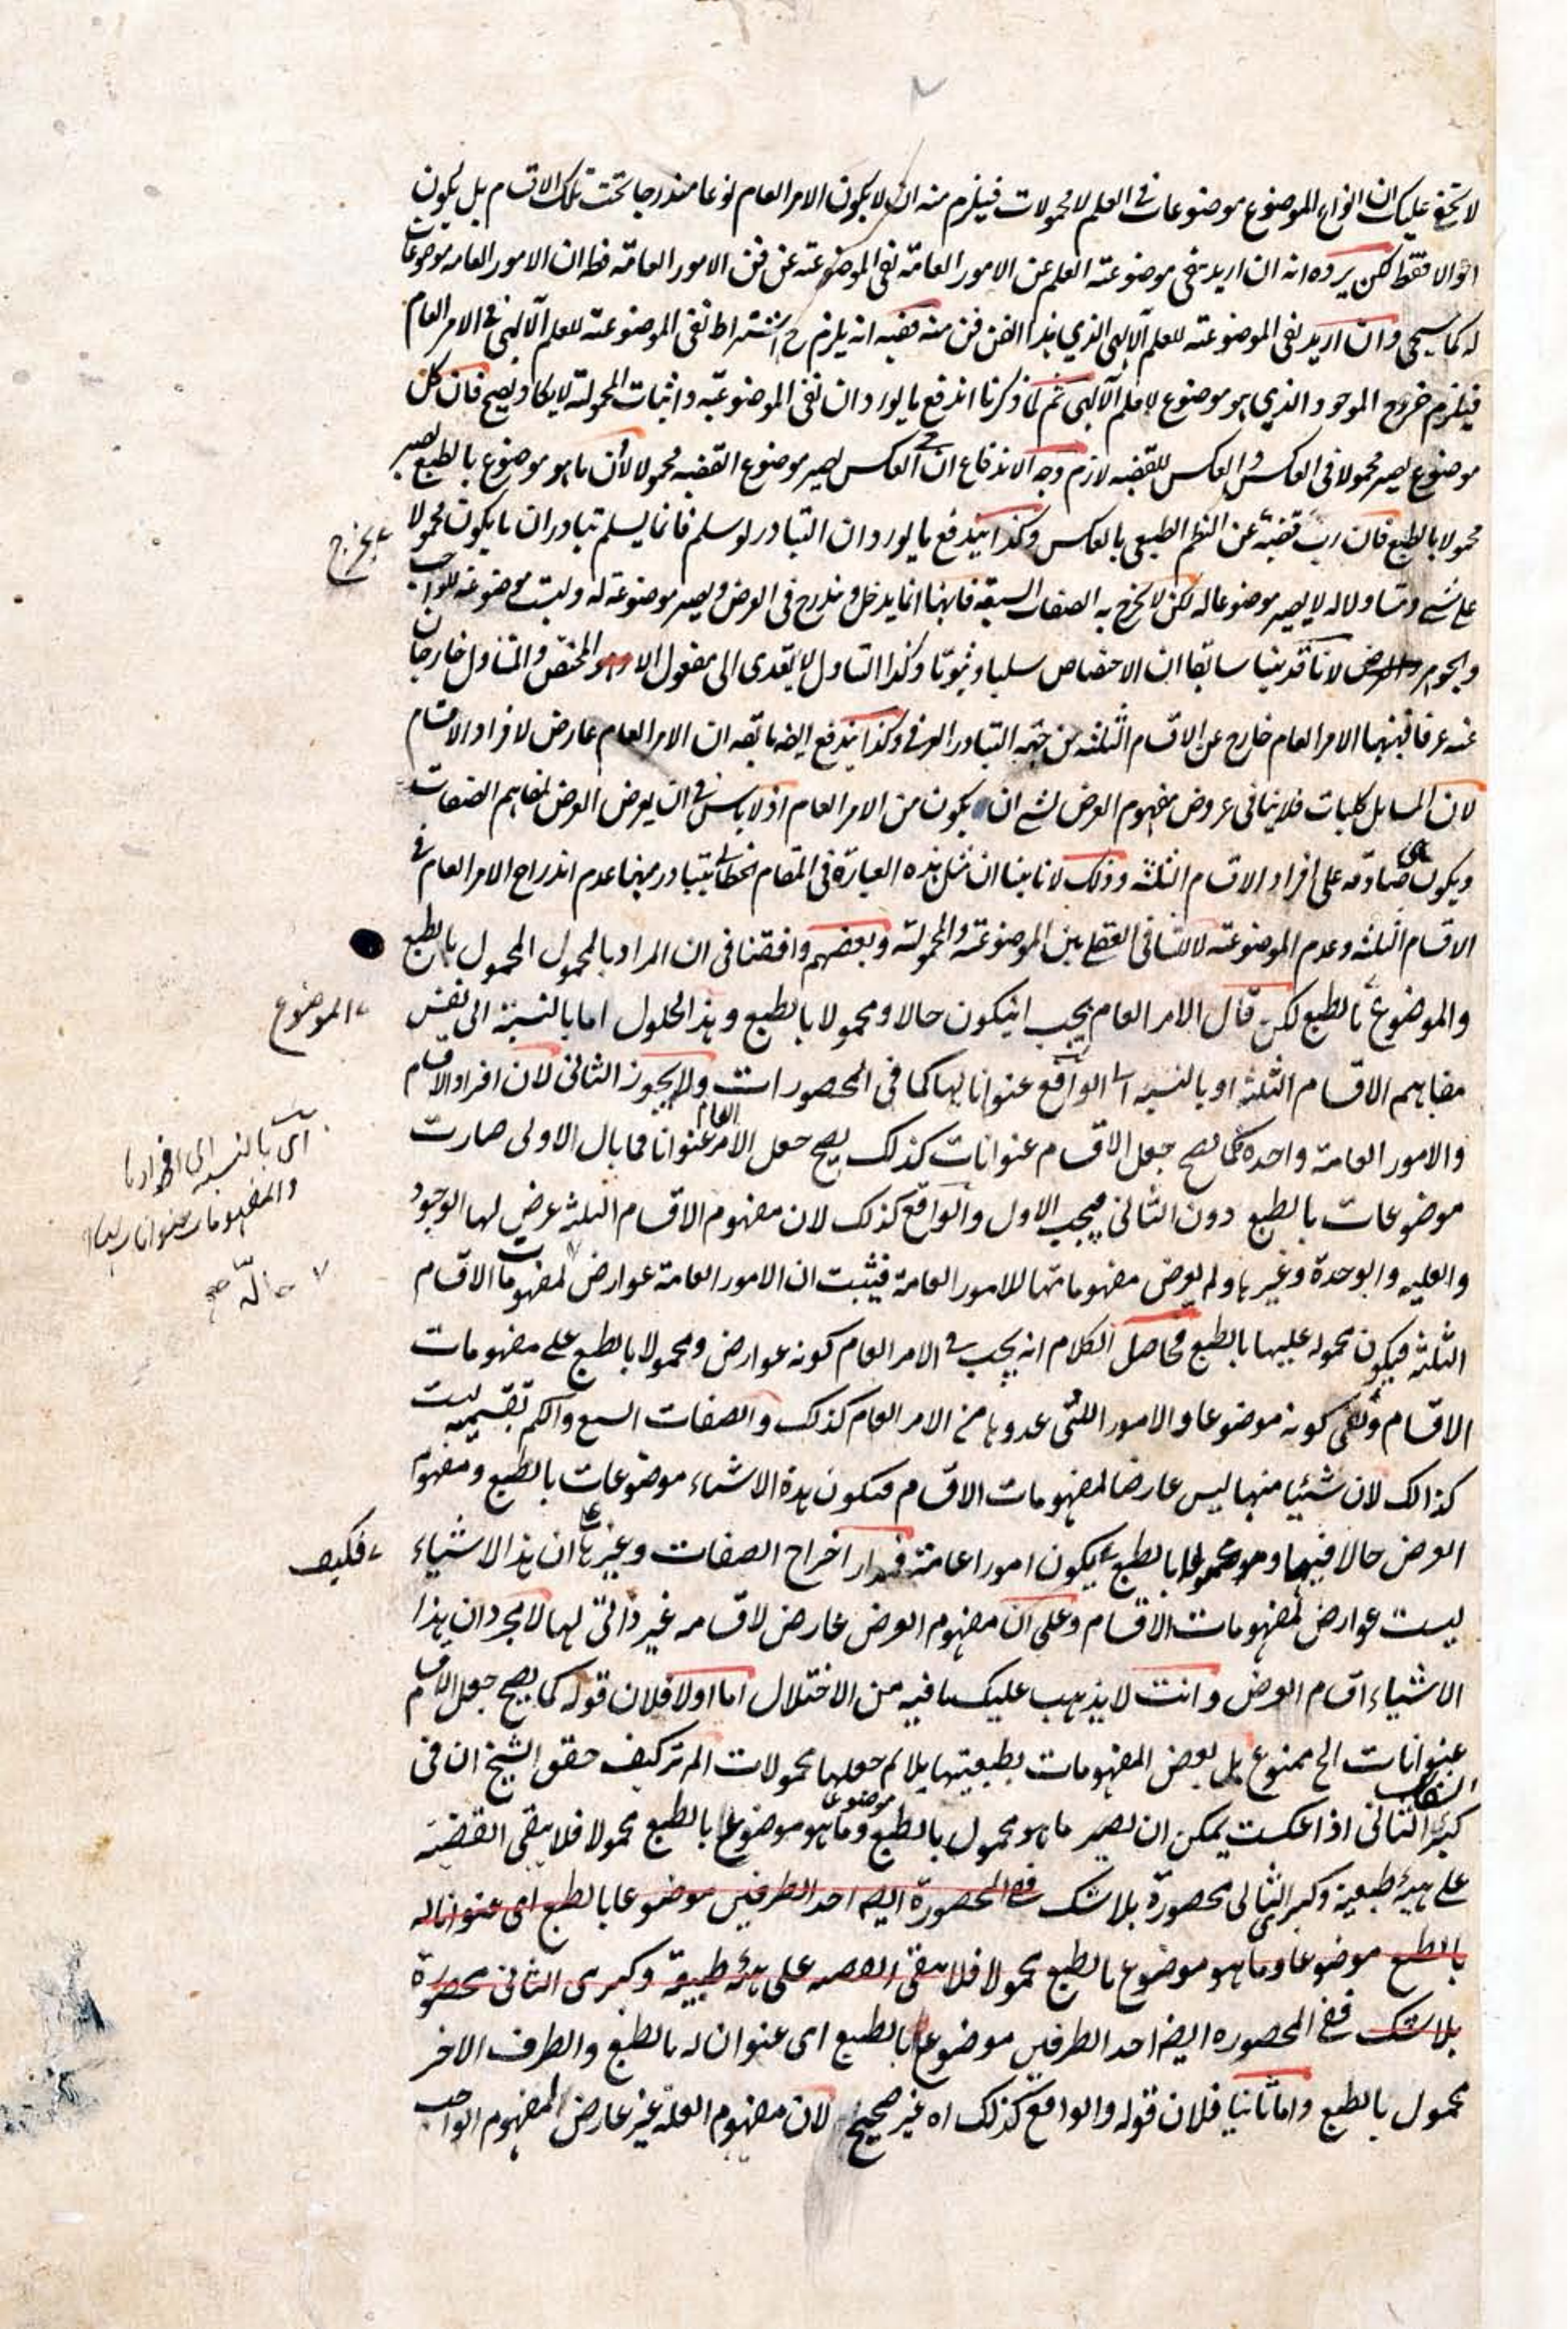 لا يخفى عليك ان انواع الموضوع موضوعات فى العلم لا محمولات فيلزم منه ان لا يكون الامر العام نوعا مندرجا تحت تلك الاقسام بل يكون
احوالا فقط لكن يرده انه ان اريد نفى موضوعية العلم عن الامور العامة نفى الموضوعية عن فن الامور العامة فظ ان الامور العامة موضوعات
له كما سيجى وان اريد نفى الموضوعية للعلم الآلهى الذي هذا الفن فن منه ففيه انه يلزم ح اشتراط نفى الموضوعية للعلم الآلهى فى الامر العام
فيلزم خروج الموجود الذي هو موضوع للعلم الآلهى ثم لما ذكرنا اندفع ما يورد ان نفى الموضوعية واثبات المحمولية لا يكاد يصح فان كل
موضوع يصير محمولا فى العكس والعكس للقضية لازم وجه الاندفاع ان فى العكس يصير موضوع القضية محمولا لا ان ما هو موضوع بالطبع يصير
محمولا بالطبع فان رب قضية عن النظم الطبعى بالعكس وكذا يندفع ما يورد ان التبادر لو سلم فانما يسلم تبادر ان ما يكون محمولا
على شئ ومتناولا له لا يصير موضوعا له لكن لا يخرج به الصفات السبعة فانها انما يدخل ويندرج فى العرض ويصير موضوعة له وليست موضوعة للواجب
والجوهر لانا قد بينا سابقا ان الاختصاص سلبا وثبوتا وكذا التناول لا يتعدى الى مفعول الا و المختص والمتناول خارجان
عنه عرفا فبينهما الامر العام خارج عن الاقسام الثلثة من جهة التبادر العرفى وكذا يندفع ايضا ما يقه ان الامر العام عارض لافراد الاقسام
لان المسايل كليات فلا ينافى عروض مفهوم العرض لشئ ان يكون من الامر العام اذ لا باس فى ان يعرض العرض لمفاهيم الصفات
ويكون صادقه على افراد الاقسام الثلثة وذلك لانا بينا ان مثل هذه العبارة فى المقام الخطابى يتبادر منها عدم اندراج الامر العام فى
الاقسام الثلثة وعدم الموضوعية لا التنافى العقلى بين الموضوعية والمحمولية وبعضهم وافقنا فى ان المراد بالمحمول المحمول بالطبع
والموضوع بالطبع لكن قال الامر العام يجب ان يكون حالا ومحمولا بالطبع وهذا الحلول اما بالنسبة الى نفس
مفاهيم الاقسام الثلثة او بالنسبة الى الواقع عنوانا لها كما فى المحصورات ولا يجوز الثانى لان افراد الاقسام
والامور العامة واحدة فكما يصح جعل الاقسام عنوانات كذلك يصح جعل الامر العام عنوانا فما بال الاولى صارت
موضوعات بالطبع دون الثانى فيجب الاول والواقع كذلك لان مفهوم الاقسام الثلثة عرض لها الوجود
والعليه والوحدة وغيرها ولم يعرض مفهوماتها للامور العامة فيثبت ان الامور العامة عوارض لمفهومات الاقسام
الثلثة فيكون محموله عليها بالطبع فحاصل الكلام انه يجب فى الامر العام كونه عوارض ومحمولا بالطبع على مفهومات
الاقسام ونفى كونه موضوعا والامور اللتى عدوها من الامر العام كذلك والصفات السبع والكم بقسميه ليست
كذالك لان شيئا منها ليس عارضا لمفهومات الاقسام فتكون هذه الاشياء موضوعات بالطبع ومفهوم
العرض حالا فيها ومحمولا بالطبع يكون امورا عامة فمدار اخراج الصفات وغيرها على ان هذا الاشياء
ليست عوارض لمفهومات الاقسام وعلى ان مفهوم العرض عارض لاقسامه غير ذاتى لها لا مجرد ان هذا
الاشياء اقسام العرض وانت لا يذهب عليك ما فيه من الاختلال اما اولا فلان قوله كما يصح جعل الاقسام
عنوانات الح ممنوع بل بعض المفهومات بطبيعتها يلائم جعلها محمولات الم تر كيف حقق الشيخ ان فى
الشكل
كبرى الثانى اذا عكست يمكن ان يصير ما هو محمول بالطبع موضوعا وما هو موضوع بالطبع محمولا فلا يبقى القضية
على هيئة طبعية وكبرى الثانى محصورة بلا شك ففى المحصورة ايضا احد الطرفين موضوعا بالطبع اى عنوانا له
بالطبع موضوعا وما هو موضوع بالطبع محمولا فلا يبقى القضية على هيئة طبيعة وكبرى الثانى محصورة
بلا شك ففى المحصوره ايضا احد الطرفين موضوع بالطبع اى عنوان له بالطبع والطرف الاخر
محمول بالطبع واما ثانيا فلان قوله والواقع كذلك اه غير صحيح لان مفهوم العلة غير عارض لمفهوم الواجب
يخرج
الموضوع
اى بالنسبه الى افرادها
والمفهومات عنوانات لها
صح
فكيف